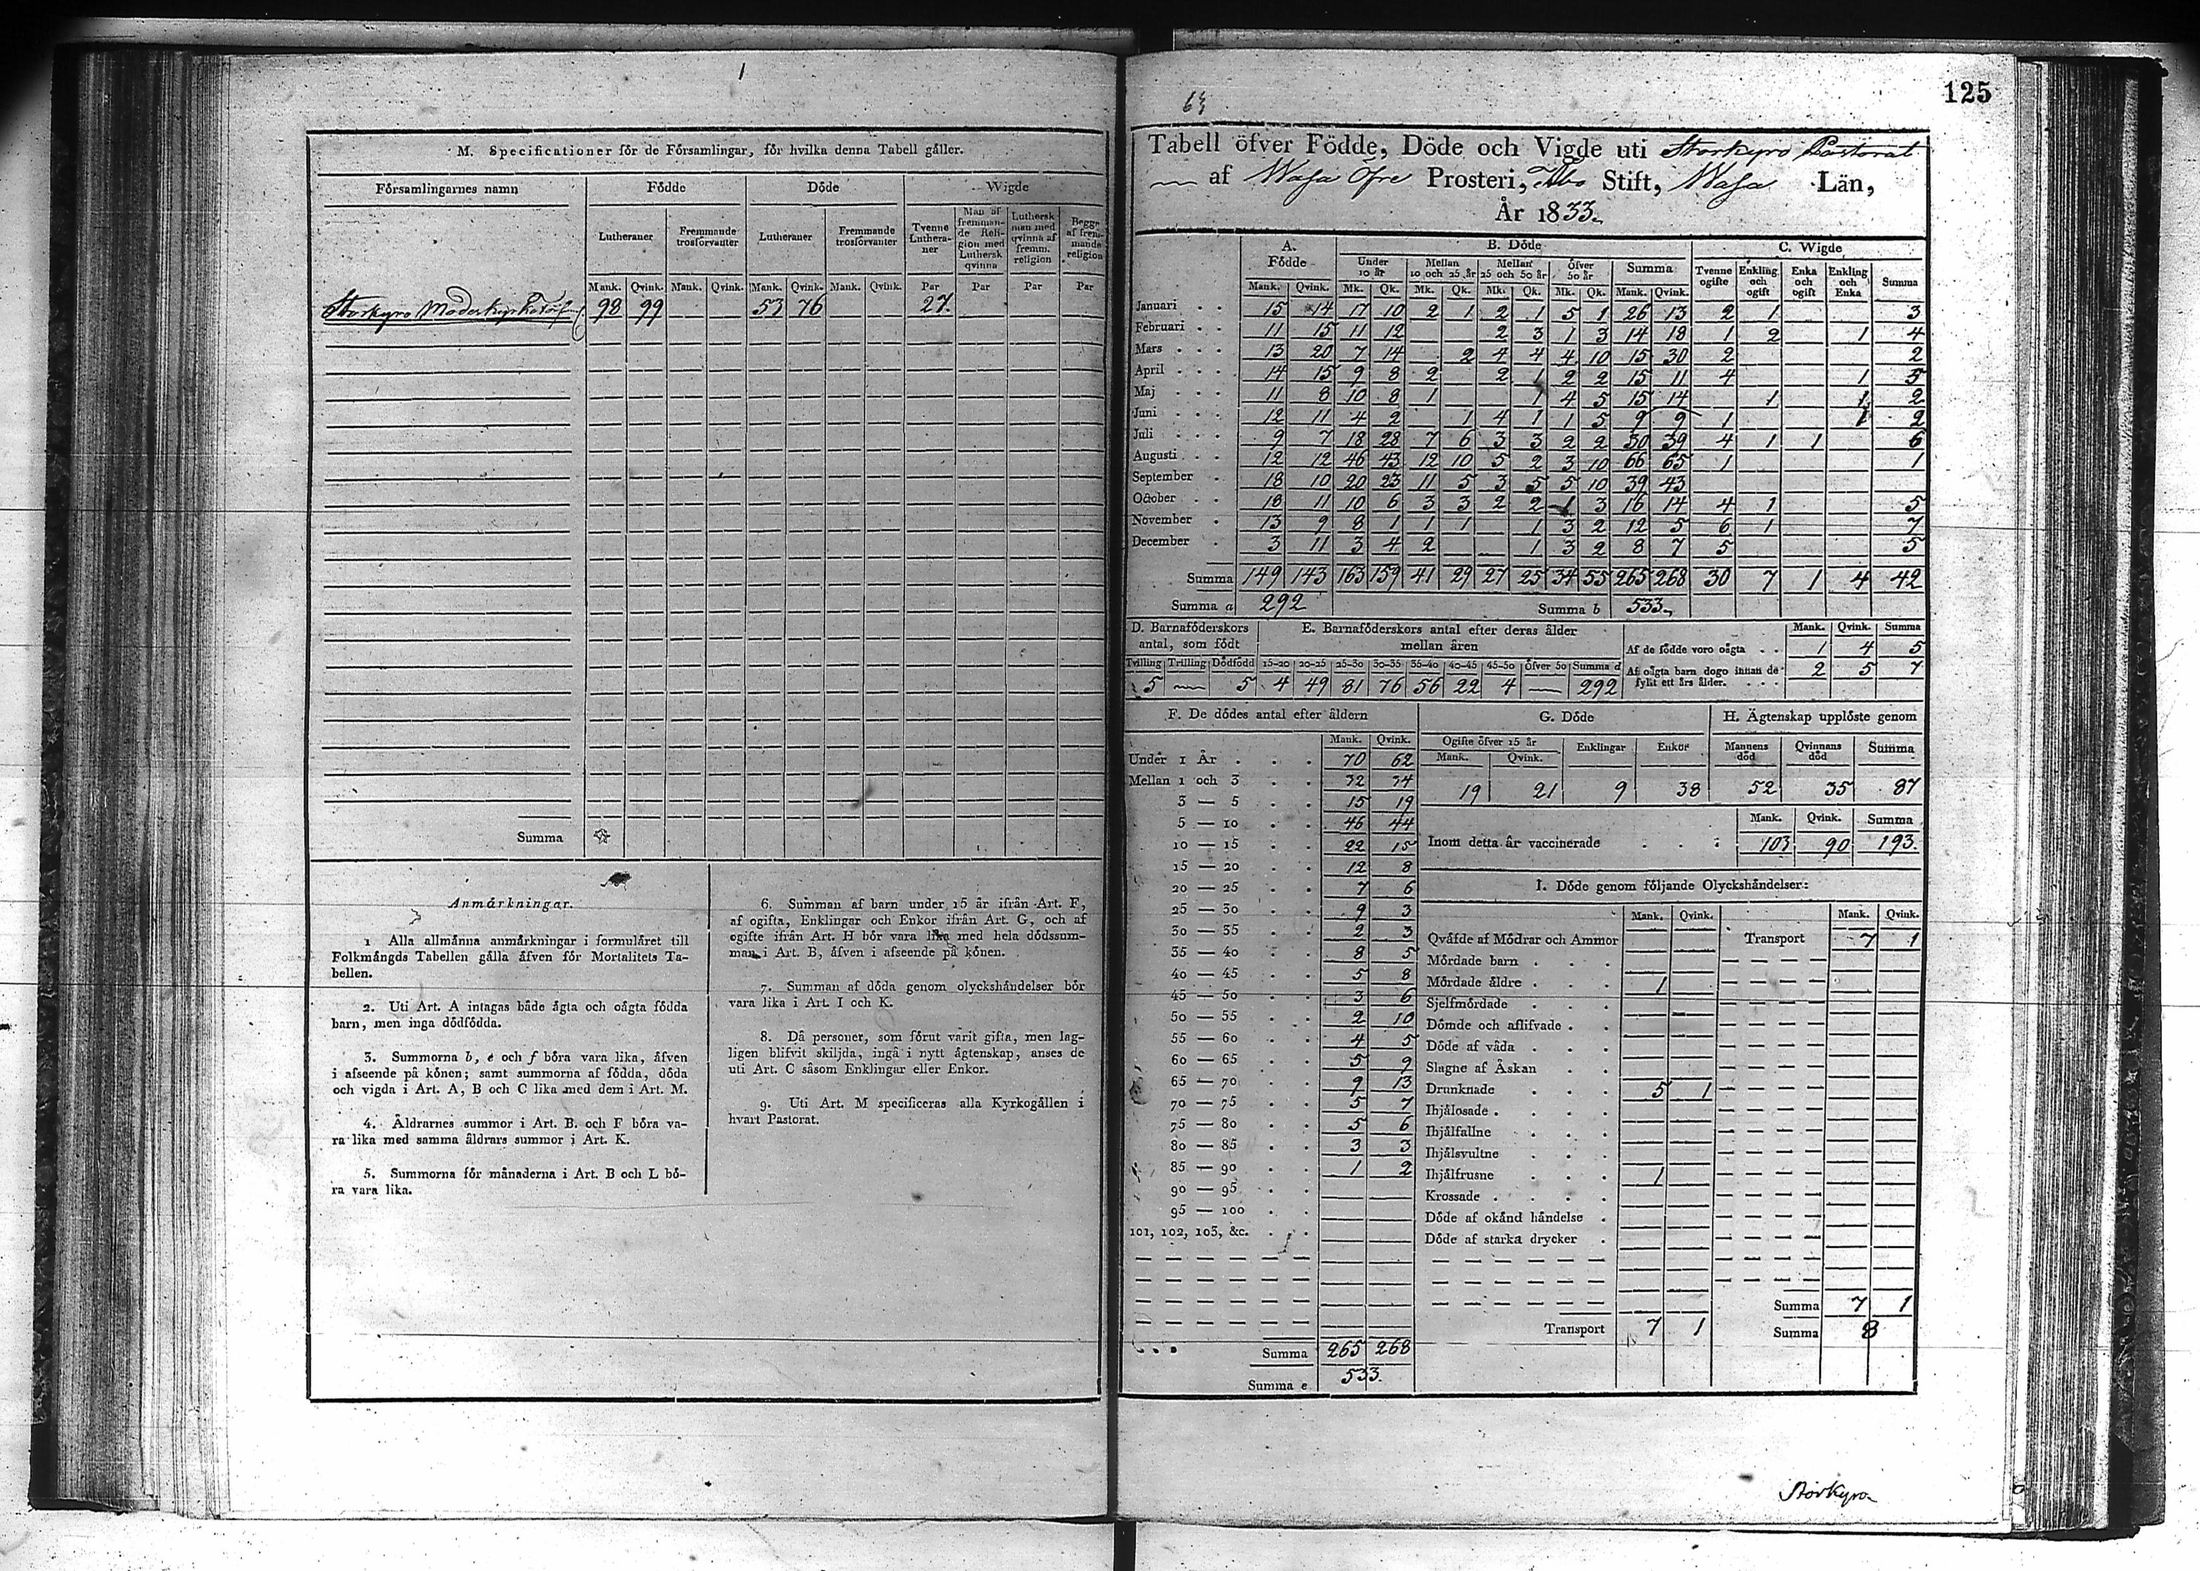 1
M. Specificationer för de Församlingar, för hvilka denna Tabell gäller.
Församlingarnes namn | Födde | Döde | Wigde
Lutheraner | Fremmande trosförvanter | Lutheraner | Fremmande trosförvanter | Tvenne Lutheraner | Man af fremmande Religion med Luthersk qvinna | Luthersk man med qvinna af fremm. religion | Begge af fremmande religion
Mank. | Qvink. | Mank. | Qvink. | Mank. | Qvink. | Mank. | Qvink. | Par | Par | Par | Par
Storkyro | 98 | 99 | 53 | 76 | 27.
Summa
Anmärkningar.
1 Alla allmänna anmärkningar i formuläret till
Folkmängds Tabellen gälla äfven för Mortalitets Ta-
bellen.
2. Uti Art. A intagas både ägta och oägta födda
barn, men inga dödfödda.
3. Summorna b, e och f böra vara lika, äfven
i afseende på könen; samt summorna af födda, döda
och vigda i Art. A, B och C lika med dem i Art. M.
4. Äldrarnes summor i Art. B. och F böra va-
ra lika med samma äldrars summor i Art. K.
5. Summorna för månaderna i Art. B och L bö-
ra vara lika.
6. Summan af barn under 15 år ifrån Art. F,
af ogifta, Enklingar och Enkor ifrån Art. G, och af
egifte ifrån Art. H bör vara lika med hela dödssum-
man i Art. B, äfven i afseende på könen.
7. Summan af döda genom olyckshändelser bör
vara lika i Art. I och K.
8. Då personer, som förut varit gifta, men lag-
ligen blifvit skiljda, ingå i nytt ägtenskap, anses de
uti Art. C såsom Enklingar eller Enkor.
9. Uti Art. M specificeras alla Kyrkogällen i
hvart Pastorat.
125
Tabell öfver Födde, Döde och Vigde uti Storkyro Pastorat
af Wasa Öfre Prosteri, Åbo Stift, Wasa Län,
År 1833.
A. Födde | B. Döde | C. Wigde
Under 10 år | Mellan 10 och 25 år | Mellan 25 och 50 år | Öfver 50 år | Summa | Tvenne ogifte | Enkling och ogift | Enka och ogift | Enkling och Enka | Summa
Mank. | Qvink. | Mk. | Qk. | Mk. | Qk. | Mk. | Qk. | Mk. | Qk. | Mank. | Qvink.
Januari | 15 | 14 | 17 | 10 | 2 | 1 | 2 | 1 | 5 | 1 | 26 | 13 | 2 | 1 | 3
Februari | 11 | 15 | 11 | 12 | 2 | 3 | 1 | 3 | 14 | 18 | 1 | 2 | 1 | 4
Mars | 13 | 20 | 7 | 14 | 2 | 4 | 4 | 4 | 10 | 15 | 30 | 2 | 2
April | 14 | 15 | 9 | 8 | 2 | 2 | 1 | 2 | 2 | 15 | 11 | 4 | 1 | 5
Maj | 11 | 8 | 10 | 8 | 1 | 1 | 4 | 5 | 15 | 14 | 1 | 1 | 2
Juni | 12 | 11 | 4 | 2 | 1 | 4 | 1 | 1 | 5 | 9 | 9 | 1 | 1 | 2
Juli | 9 | 7 | 18 | 28 | 7 | 6 | 3 | 3 | 2 | 2 | 30 | 39 | 4 | 1 | 1 | 6
Augusti | 12 | 12 | 46 | 43 | 12 | 10 | 5 | 2 | 3 | 10 | 66 | 65 | 1 | 1
September | 18 | 10 | 20 | 23 | 11 | 5 | 3 | 5 | 5 | 10 | 39 | 43
October | 18 | 11 | 10 | 6 | 3 | 3 | 2 | 2 | 1 | 3 | 16 | 14 | 4 | 1 | 5
November | 13 | 9 | 8 | 1 | 1 | 1 | 1 | 3 | 2 | 12 | 5 | 6 | 1 | 7
December | 3 | 11 | 3 | 4 | 2 | 1 | 3 | 2 | 8 | 7 | 5 | 5
Summa | 149 | 143 | 163 | 159 | 41 | 29 | 27 | 25 | 34 | 55 | 265 | 268 | 30 | 7 | 1 | 4 | 42
Summa a | 292 | Summa b | 533.
D. Barnaföderskors antal, som födt | E. Barnaföderskors antal efter deras ålder mellan åren | Mank. | Qvink. | Summa
Af de födde voro oägta | 1 | 4 | 5
Tvilling | Trilling | Dödfödd | 15-20 | 20-25 | 25-30 | 30-35 | 35-40 | 40-45 | 45-50 | Öfver 50 | Summa d
5 | — | 5 | 4 | 49 | 81 | 76 | 56 | 22 | 4 | — | 292
Af oägta barn dogo innan de fyllt ett års ålder. | 2 | 5 | 7
F. De dödes antal efter åldern
Mank. | Qvink.
Under 1 År | 70 | 62
Mellan 1 och 3 | 32 | 34
3 — 5 | 15 | 19
5 — 10 | 46 | 44
10 — 15 | 22 | 15
15 — 20 | 12 | 8
20 — 25 | 7 | 6
25 — 30 | 9 | 3
30 — 35 | 2 | 3
35 — 40 | 8 | 5
40 — 45 | 5 | 8
45 — 50 | 3 | 6
50 — 55 | 2 | 10
55 — 60 | 4 | 5
60 — 65 | 5 | 9
65 — 70 | 9 | 13
70 — 75 | 5 | 7
75 — 80 | 5 | 6
80 — 85 | 3 | 3
85 — 90 | 1 | 2
90 — 95
95 — 100
101, 102, 103, &c.
Summa | 265 | 268
Summa e | 533.
G. Döde | H. Ägtenskap upplöste genom
Ogifte öfver 15 år | Enklingar | Enkor | Mannens död | Qvinnans död | Summa
Mank. | Qvink.
19 | 21 | 9 | 38 | 52 | 35 | 87
Mank. | Qvink. | Summa
Inom detta år vaccinerade | 103 | 90 | 193.
I. Döde genom följande Olyckshändelser:
Mank. | Qvink. | Mank. | Qvink.
Qväfde af Mödrar och Ammor | Transport | 7 | 1
Mördade barn
Mördade äldre | 1
Sjelfmördade
Dömde och aflifvade
Döde af våda
Slagne af Åskan
Drunknade | 5 | 1
Ihjälosade
Ihjälfallne
Ihjälsvultne
Ihjälfrusne | 1
Krossade
Döde af okänd händelse
Döde af starka drycker
Summa | 7 | 1
Transport | 7 | 1 | Summa | 8
Storkyro